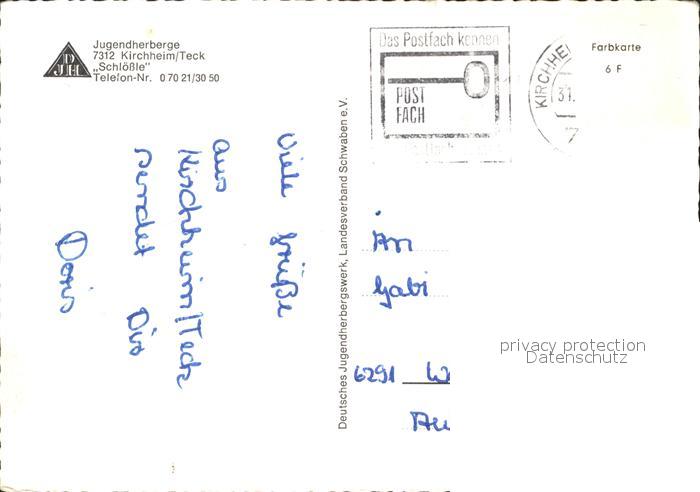 DJH
Jugendherberge
7312 Kirchheim/Teck
„Schlößle"
Telefon-Nr. 0 70 21/30 50
Viele Grüße
aus
Kirchheim/Teck
sendet Dir
Doris
Deutsches Jugendherbergswerk, Landesverband Schwaben e.V.
Das Postfach kennen
POST
FACH
KIRCHHE
31.
Farbkarte
6 F
An
Gabi
6291 W
privacy protection
Datenschutz